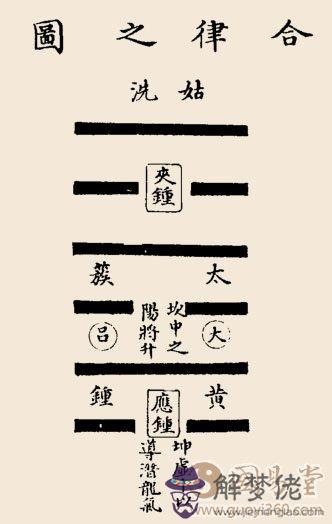 合律之圖
姑洗
夾鍾
太簇
坎中之
陽將升
大呂
黃鍾
應鍾
坤虛以
導潛龍氣
解梦佬
www.jiemenglao.com